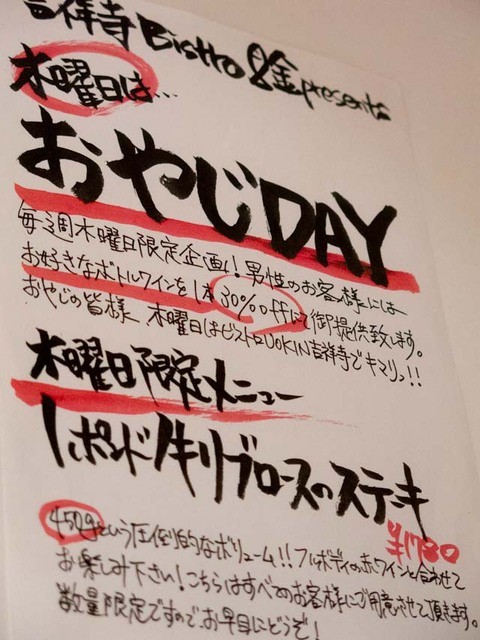 吉祥寺 Bistro 魚金 presents
木曜日は…
おやじDAY
毎週木曜日限定企画！男性のお客様には
お好きなボトルワインを1本30%offにて御提供致します。
おやじの皆様 木曜日はビストロUOKIN吉祥寺でキマリっ!!
木曜日限定メニュー
1ポンド牛リブロースのステーキ
¥1780
450gという圧倒的なボリューム!!フルボディの赤ワインと合わせて
お楽しみ下さい！こちらはすべてのお客様にご用意させて頂きます。
数量限定ですのでお早目にどうぞ！